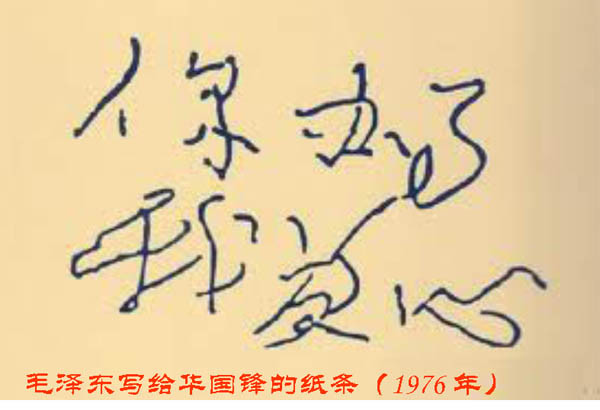 你办事
我放心
毛泽东写给华国锋的纸条（1976年）